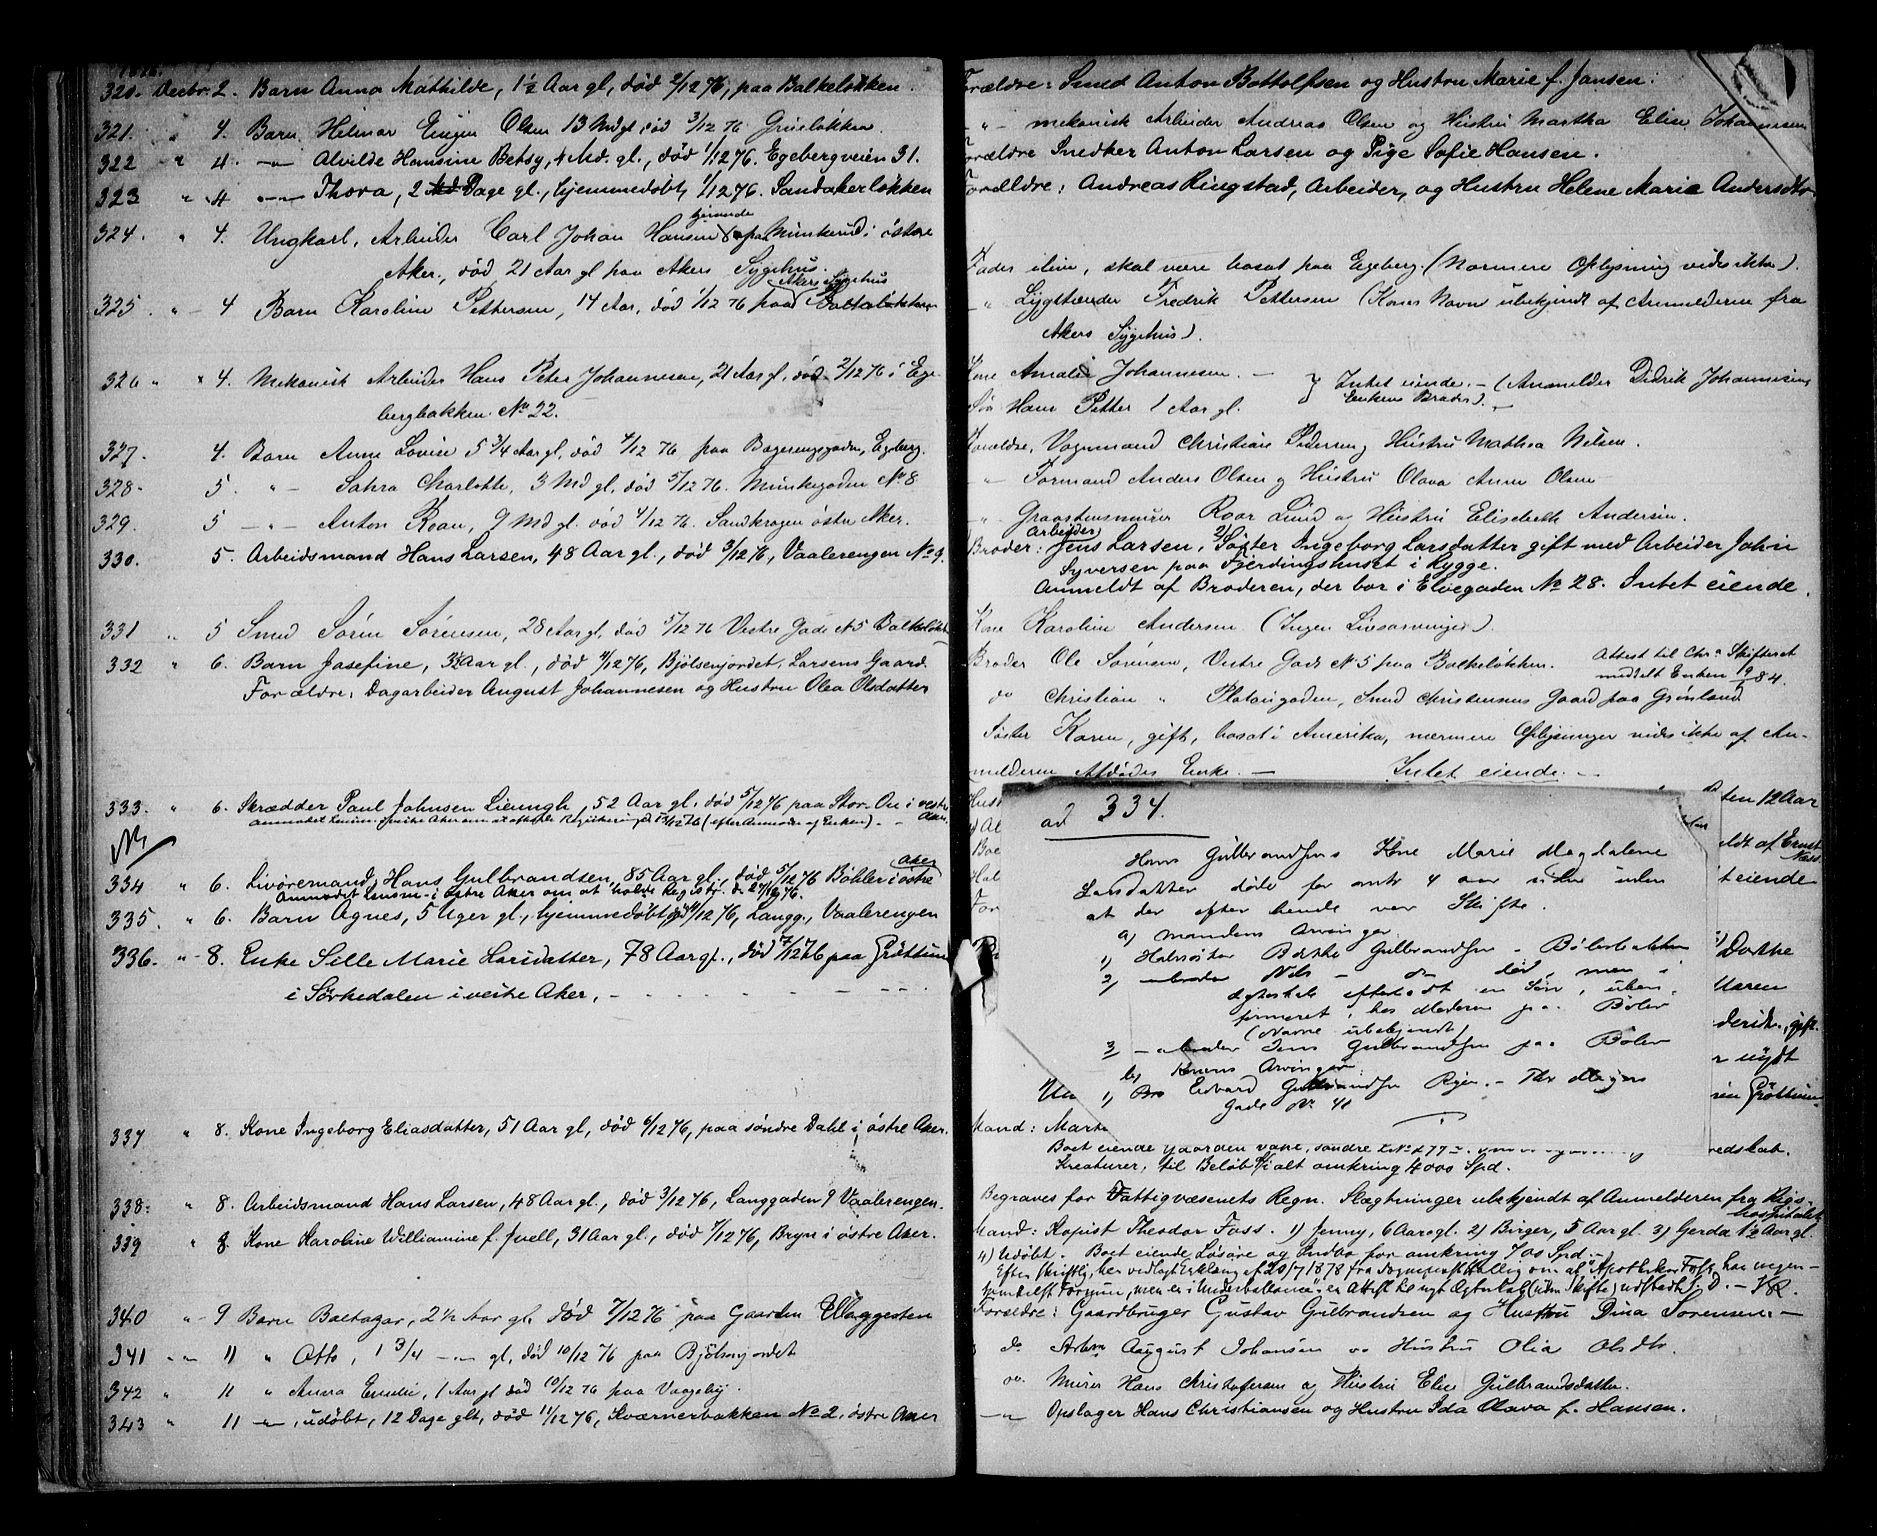 1876.
320. Decbr. 2. Barn Anna Mathilde, 1½ Aar gl, død 2/12 76, paa Balkeløkken.
321. " 4. Barn Helmar Eugen Olsen 13 Md gl, død 3/12 76 Grüsløkken.
322 " 4. —"— Alvilde Hansine Betsy, 4 Md. gl., død 1/12 76. Egebergveien 31.
323 " 4 —"— Thora, 2 Dage gl., hjemmedøbt, 1/12 76. Sandakerløkken
324. " 4. Ungkarl, Arbeider Carl Johan Hansen paa Munkerud i østre
Aker, død 21 Aar gl paa Akers Sygehus.
Akers Sygehus
325 " - 4 Barn Karoline Pettersen, 14 Aar, død 1/12 76 paa
326 " " 4. Mekanisk Arbeider Hans Peter Johannesen, 21 Aar gl, død 2/12 76 i Ege-
bergbakken No 22.
327. 4. Barn Anne Lovise 5 3/4 Aar gl, død 4/12 76 paa Egeberg.
328- 5. " - Sahra Charlotte, 3 Md gl, død 5/12 76. Munkegaden No 8
329. 5 —"— Anton Roan, 9 Md gl. død 4/12 76. Sandkrogen østre Aker.
330. 5. Arbeidsmand Hans Larsen, 48 Aar gl., død 3/12 76, Vaalerengen No 9.
331 " 5 Smed Søren Sørensen, 28 Aar gl, død 5/12 76 Vestre Gade N 5 Balkeløkken
332 " 6. Barn Josefine, 3½ Aar gl., død 4/12 76, Bjølsenjordet, Larsens Gaard.
Forældre: Dagarbeider August Johannesen og Hustru Olea Olsdatter
333. " 6. Skrædder Paul Johnsen Lieungh, 52 Aar gl, død 5/12 76 paa Stor-Øen i vestre
Aker.
334 " 6. Livøremand Hans Gulbrandsen, 85 Aar gl., død 5/12 76 Bøhler i østre
Aker
Anmodet Lensm. i østre Aker om at holde Registr. d. 27/12 76.
335. " 6. Barn Agnes, 5 Uger gl., hjemmedøbt, død 4/12 76, Langg., Vaalerengen
336. " - 8. Enke Sille Marie Larsdatter, 78 Aar gl., død 7/12 76 paa Grøttum
i Sørkedalen i vestre Aker,
337 " 8. Kone Ingeborg Eliasdatter, 51 Aar gl, død 6/12 76, paa søndre Dahl i østre Aker.
338. " 8. Arbeidsmand Hans Larsen, 48 Aar gl., død 3/12 76, Langgaden 9 Vaalerengen.
339 " 8. Kone Karoline Williamine f. Juell, 31 Aar gl., død 7/12 76, Bryn i østre Aker.
340 " - 9 Barn Baltazar, 2½ Aar gl, død 7/12 76 paa Gaarden Ullaggesten
341 " - " 11 " Otto, 1 3/4 —"— gl, død 10/12 76 paa Bjølsenjordet
342 " 11 " Anna Emilie, 1 Aar gl død 10/12 76 paa
343 " 11 —"—, udøbt, 12 Dage gl, død 11/12 76, Kværnerbakken No 2, østre Aker
Forældre: Smed Anton Bottolfsen og Hustru Marie f. Jansen.
- " - mekanisk Arbeider Andreas Olsen og Hustru Martha Elise Johannesen
Forældre Snedker Anton Larsen og Pige Sofie Hansen.
Forældre: Andreas Ringstad, Arbeider, og Hustru Helene Marie Andersdtr.
Fader ilive, skal være bosat paa Egeberg. (Nærmere Oplysning vides ikke).
- " Fredrik Pettersen (Kones Navn ubekjendt af Anmelderen fra
Akers Sygehus).
Kone Amalie Johannesen. — } Intet eiende. — (Anmelder Didrik Johannesen
Enkens Broder).
Søn Hans Petter 1 Aar gl.
Forældre, Vognmand Christian Pedersen og Hustru Mathea Nilsen.
- " - Formand Anders Olsen og Hustru Olava Anne Olsen
- " - Graastensmurer Roar Lund og Hustru Elisabeth Andersen.
Arbeider
Broder: Jens Larsen. 2/ Søster Ingeborg Larsdatter gift med Arbeider Johan
Syversen paa Fjerdingshuset i Rygge.
Anmeldt af Broderen, der bor i Elvegaden No 28. Intet eiende.
Kone Karoline Andersen (Ingen Livsarvinger).
Broder Ole Sørensen, Vestre Gade N. 5 paa Balkeløkken. Attest til Chr.a Skifteret
meddelt Enken 84.
do Christian " Platougaden, Smed Christensens Gaard paa Grønland
Søster Karen, gift, bosat i Amerika, nærmere Oplysninger vides ikke af An-
melderen Afdødes Enke. — Intet eiende. —
ad 334.
Hans Gulbrandsens Kone Marie Magdalene
Larsdatter døde for omtr 4 aar siden uden
at der efter hende var Skifte.
a) Mandens Arvinger.
1) Halvsøster Berthe Gulbrandsen -
2) —"— broder Nils — do — død, men i
Ægteskab efterladt en Søn, ukon-
firmeret, hos Moderen paa Bøler
(Navne ubekjendt)
3) —"— broder Jens Gulbrandsen paa Bøler
b) Konens Arvinger:
1) Bro Edvard Gulbrandsen Ryen. - Thv Meyers
Gade No 41
ten 12 Aar
ldt af Ernst
t eiende
Dorthe
Maren
nydt
Grøttum
Mand: Marte
Boet eiende Gaarden
redskab.
Kreaturer, til Beløb i alt omkring 4000 Spd.
Begraves for Fattigvæsenets Regn. Slægtninger ubekjendt af Anmelderen fra Rigs-
hospitalet
Mand: Kopist Theodor Foss. 1) Jenny, 6 Aar gl. 2) Birger, 5 Aar gl. 3) Gerda 1½ Aar gl.
4) Udøbt. Boet eiende Løsøre og Indbo for omkring 700 Spd.
Forældre: Gaardbruger Gustav Gulbrandsen og Hustru Dina Sørensen. —
do Arbeider August Johansen og Hustru Olia Olsdtr.
do. Murer Hans Christofersen og Hustru Elise Gulbrandsdatter.
—"— Opslager Hans Christiansen og Hustru Ida Olava f. Hansen.